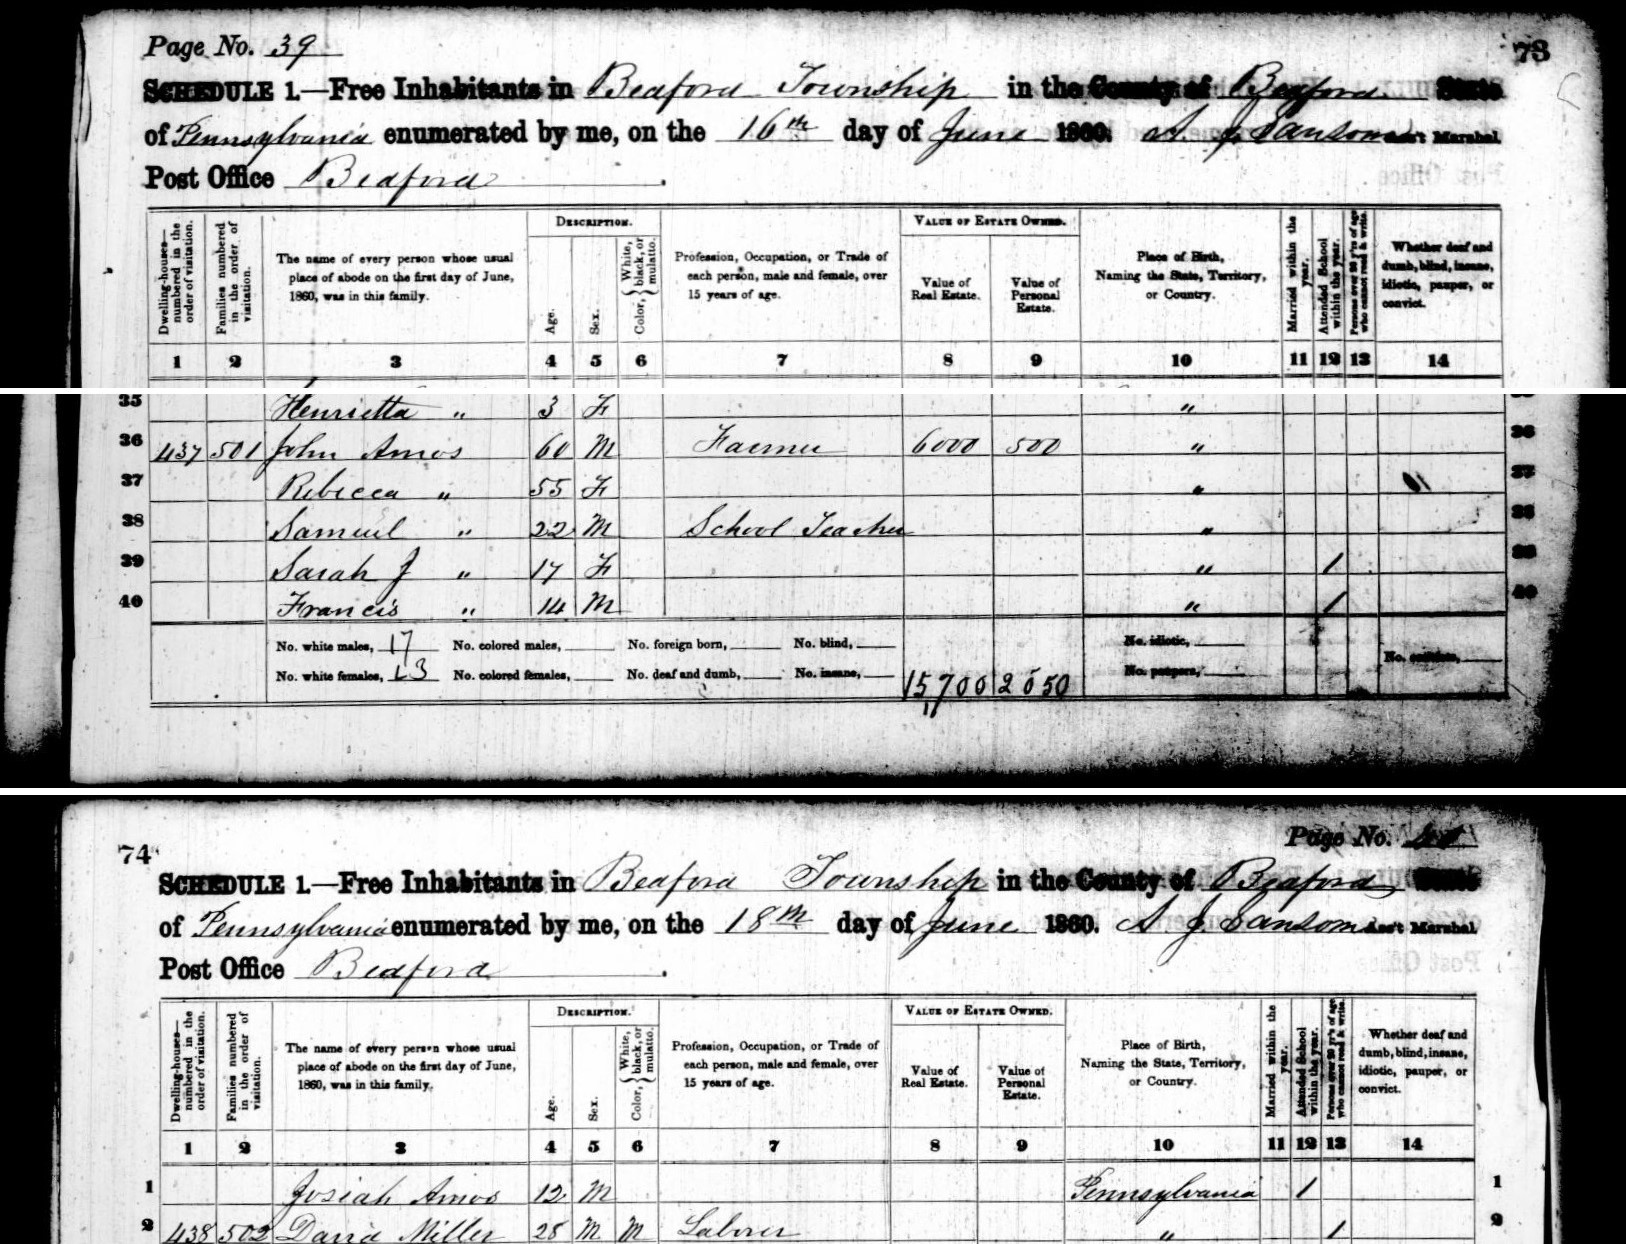 Page No. 39
73
SCHEDULE 1.—Free Inhabitants in Bedford Township in the County of Bedford State
of Pennsylvania enumerated by me, on the 16th day of June 1860. A. J. Sansom Ass't Marshal.
Post Office Bedford.
Dwelling-houses—numbered in the order of visitation.
Families numbered in the order of visitation.
The name of every person whose usual place of abode on the first day of June, 1860, was in this family.
DESCRIPTION.
Age.
Sex.
Color, { White, black, or mulatto.
Profession, Occupation, or Trade of each person, male and female, over 15 years of age.
VALUE OF ESTATE OWNED.
Value of Real Estate.
Value of Personal Estate.
Place of Birth, Naming the State, Territory, or Country.
Married within the year.
Attended School within the year.
Persons over 20 y'rs of age who cannot read & write.
Whether deaf and dumb, blind, insane, idiotic, pauper, or convict.
1 2 3 4 5 6 7 8 9 10 11 12 13 14
35 Henrietta " 3 F "
36 437 501 John Amos 60 M Farmer 6000 500 " 36
37 Rebecca " 55 F " 37
38 Samuel " 22 M School Teacher " 38
39 Sarah J " 17 F " 1 39
40 Francis " 14 M " 1 40
No. white males, 17 No. colored males, No. foreign born, No. blind, No. idiotic,
No. white females, 23 No. colored females, No. deaf and dumb, No. insane, 15700 2050 No. paupers, No. convicts,
74
Page No. 40
SCHEDULE 1.—Free Inhabitants in Bedford Township in the County of Bedford State
of Pennsylvania enumerated by me, on the 18th day of June 1860. A J Sansom Ass't Marshal.
Post Office Bedford.
Dwelling-houses—numbered in the order of visitation.
Families numbered in the order of visitation.
The name of every person whose usual place of abode on the first day of June, 1860, was in this family.
DESCRIPTION.
Age.
Sex.
Color, { White, black, or mulatto.
Profession, Occupation, or Trade of each person, male and female, over 15 years of age.
VALUE OF ESTATE OWNED.
Value of Real Estate.
Value of Personal Estate.
Place of Birth, Naming the State, Territory, or Country.
Married within the year.
Attended School within the year.
Persons over 20 y'rs of age who cannot read & write.
Whether deaf and dumb, blind, insane, idiotic, pauper, or convict.
1 2 3 4 5 6 7 8 9 10 11 12 13 14
1 Josiah Amos 12 M Pennsylvania 1 1
2 438 502 David Miller 28 M M Laborer " 1 2